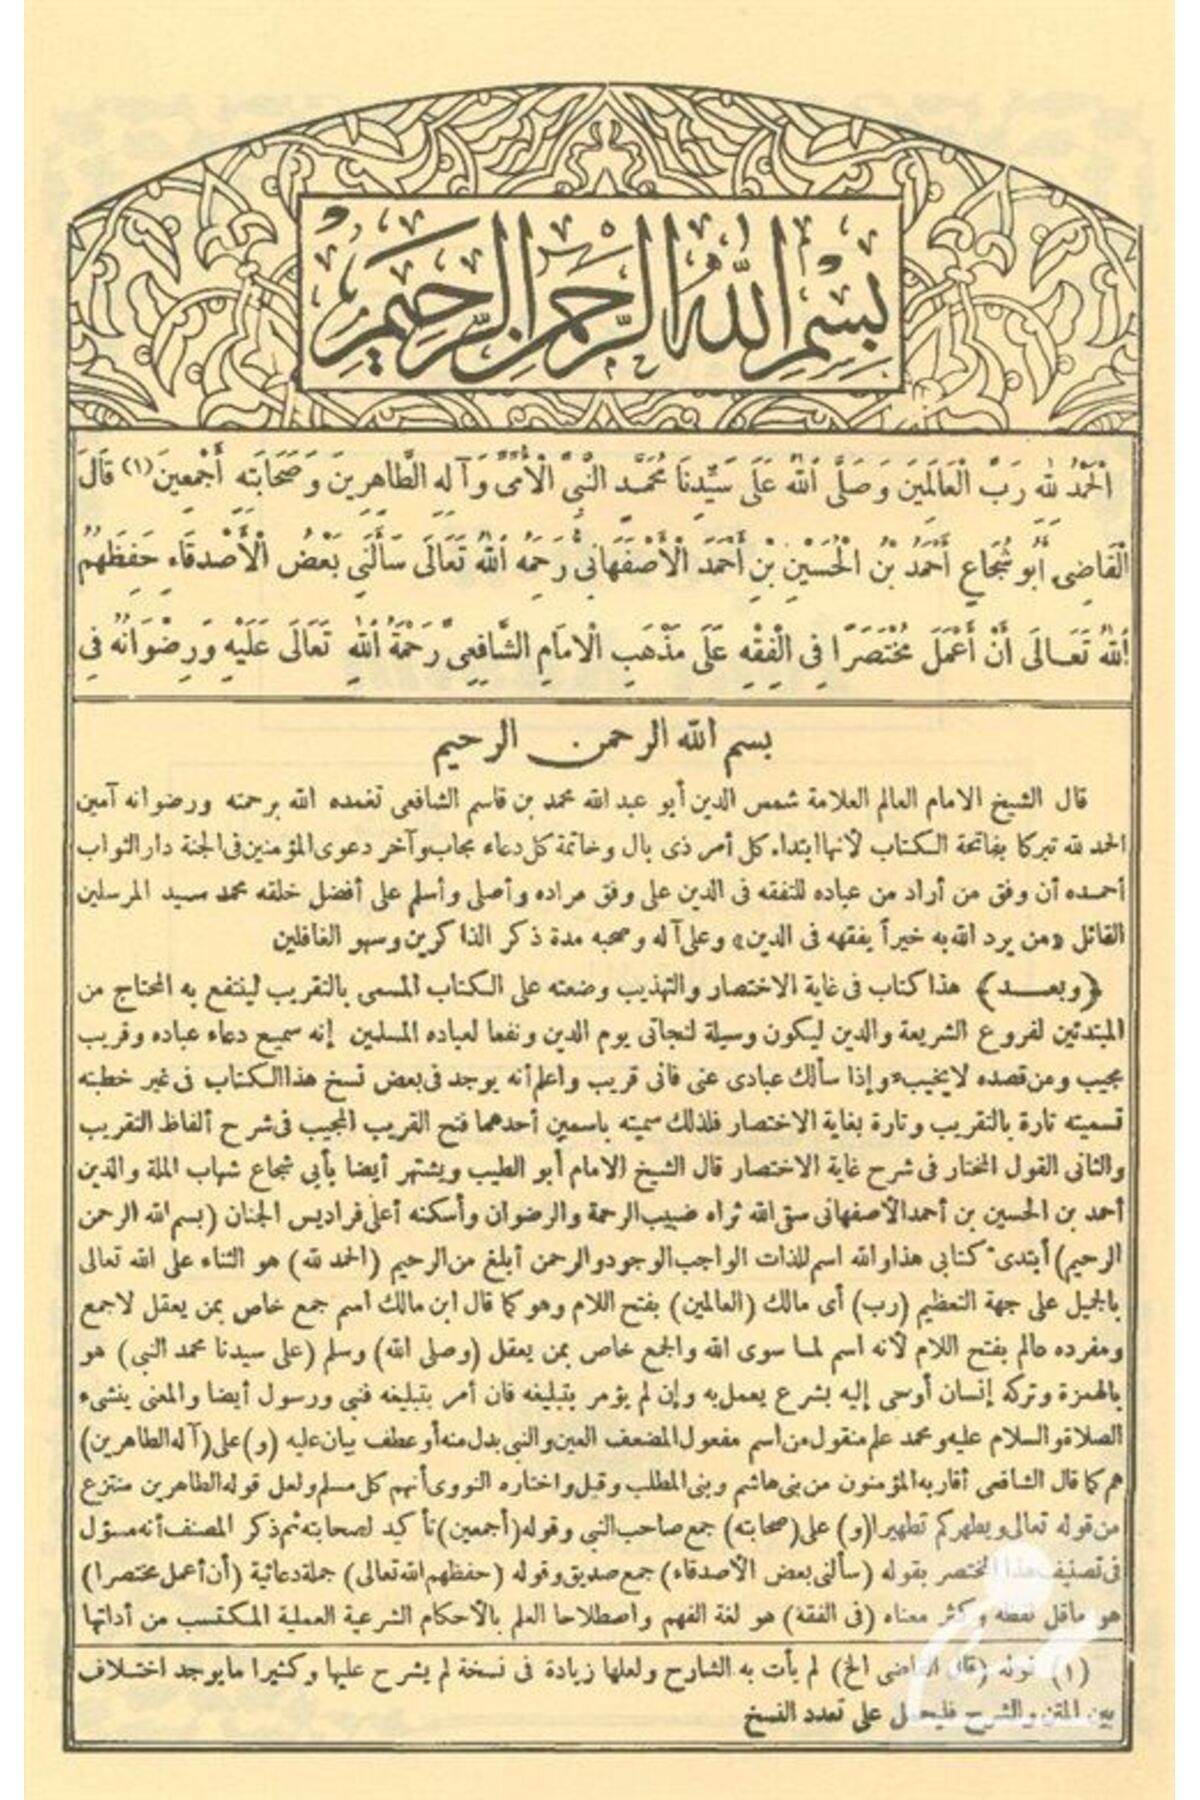 بِسْمِ اللَّهِ الرَّحْمَنِ الرَّحِيمِ
الْحَمْدُ لِلّٰهِ رَبِّ الْعَالَمِينَ وَصَلَّى اللّٰهُ عَلَى سَيِّدِنَا مُحَمَّدٍ النَّبِيِّ الْأُمِّيِّ وَآلِهِ الطَّاهِرِينَ وَصَحَابَتِهِ أَجْمَعِينَ (١) قَالَ
الْقَاضِى أَبُو شُجَاعٍ أَحْمَدُ بْنُ الْحُسَيْنِ بْنِ أَحْمَدَ الْأَصْفَهَانِىُّ رَحِمَهُ اللّٰهُ تَعَالَى سَأَلَنِى بَعْضُ الْأَصْدِقَاءِ حَفِظَهُمُ
اللّٰهُ تَعَالَى أَنْ أَعْمَلَ مُخْتَصَرًا فِى الْفِقْهِ عَلَى مَذْهَبِ الْامَامِ الشَّافِعِىِّ رَحْمَةُ اللّٰهِ تَعَالَى عَلَيْهِ وَرِضْوَانُهُ فِى
بسم الله الرحمن الرحيم
قال الشيخ الامام العالم العلامة شمس الدين أبو عبد الله محمد بن قاسم الشافعى تغمده الله برحمته ورضوانه آمين
الحمد لله تبركا بفاتحة الكتاب لأنها ابتداء كل أمر ذى بال وخاتمة كل دعاء مجاب وآخر دعوى المؤمنين فى الجنة دار الثواب
أحمده أن وفق من أراد من عباده للتفقه فى الدين على وفق مراده وأصلى وأسلم على أفضل خلقه محمد سيد المرسلين
القائل «من يرد الله به خيراً يفقهه فى الدين» وعلى آله وصحبه مدة ذكر الذاكرين وسهو الغافلين
﴿وبعد﴾ هذا كتاب فى غاية الاختصار والتهذيب وضعته على الكتاب المسمى بالتقريب لينتفع به المحتاج من
المبتدئين لفروع الشريعة والدين ليكون وسيلة لنجاتى يوم الدين ونفعا لعباده المسلمين إنه سميع دعاء عباده وقريب
مجيب ومن قصده لا يخيب «وإذا سألك عبادى عنى فانى قريب واعلم أنه يوجد فى بعض نسخ هذا الكتاب فى غير خطبته
تسميته تارة بالتقريب وتارة بغاية الاختصار فلذلك سميته باسمين أحدهما فتح القريب المجيب فى شرح ألفاظ التقريب
والثانى القول المختار فى شرح غاية الاختصار قال الشيخ الامام أبو الطيب ويشتهر أيضا بأبى شجاع شهاب الملة والدين
أحمد بن الحسين بن أحمد الأصفهانى سقى الله ثراه صبيب الرحمة والرضوان وأسكنه أعلى فراديس الجنان (بسم الله الرحمن
الرحيم) أبتدئ كتابى هذا والله اسم للذات الواجب الوجود والرحمن أبلغ من الرحيم (الحمد لله) هو الثناء على الله تعالى
بالجميل على جهة التعظيم (رب) أى مالك (العالمين) بفتح اللام وهو كما قال ابن مالك اسم جمع خاص بمن يعقل لا جمع
ومفرده عالم بفتح اللام لأنه اسم لما سوى الله والجمع خاص بمن يعقل (وصلى الله) وسلم (على سيدنا محمد النبى) هو
بالهمزة وتركه إنسان أوحى إليه بشرع يعمل به وإن لم يؤمر بتبليغه فان أمر بتبليغه فنبى ورسول أيضا والمعنى ينشىء
الصلاة والسلام عليه ومحمد علم منقول من اسم مفعول المضعف العين والنبى بدل منه أو عطف بيان عليه (و) على (آله الطاهرين)
هم كما قال الشافعى أقاربه المؤمنون من بنى هاشم وبنى المطلب وقيل واختاره النووى أنهم كل مسلم ولعل قوله الطاهرين منتزع
من قوله تعالى ويطهركم تطهيرا (و) على (صحابته) جمع صاحب النبى وقوله (أجمعين) تأكيد لصحابته ثم ذكر المصنف أنه مسؤل
فى تصنيف هذا المختصر بقوله (سألنى بعض الأصدقاء) جمع صديق وقوله (حفظهم الله تعالى) جملة دعائية (أن أعمل مختصرا)
هو ماقل لفظه وكثر معناه (فى الفقه) هو لغة الفهم واصطلاحا العلم بالأحكام الشرعية العملية المكتسب من أدلتها
(١) قوله (قال القاضى الخ) لم يأت به الشارح ولعلها زيادة فى نسخة لم يشرح عليها وكثيرا مايوجد اختلاف
بين المتن والشرح فليحمل على تعدد النسخ